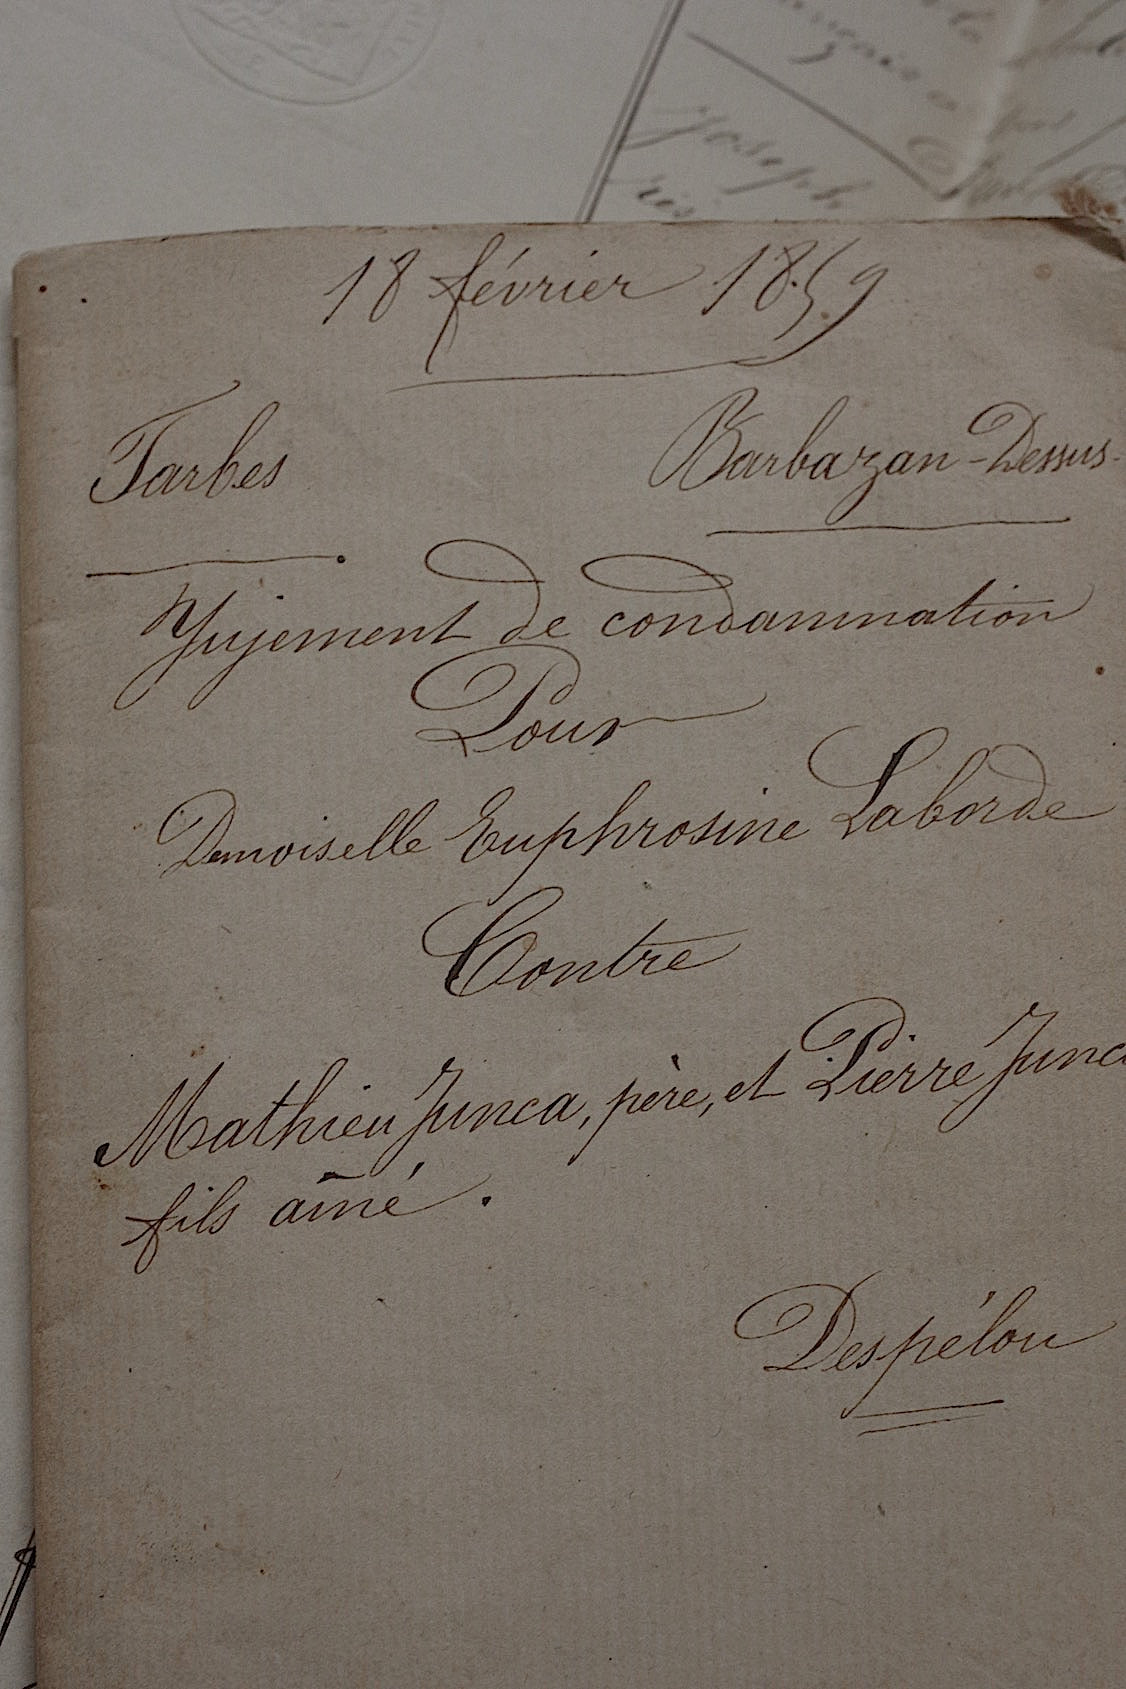 Joseph
18 février 1859
Tarbes Barbazan-Dessus-
Jujement de condamnation
Pour
Demoiselle Euphrosine Laborde
Contre
Mathieu Junca, père, et Pierre Junca
fils aîné.
Despélou